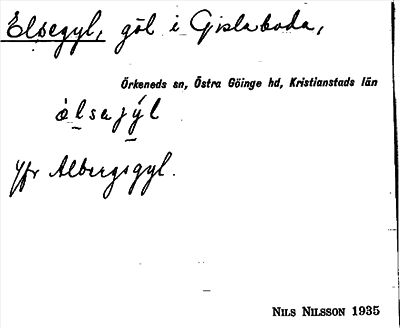 Elsegyl, göl i Gislaboda,
Örkeneds sn, Östra Göinge hd, Kristianstads län
ə̀lsəjýl
Yfr Albergsgyl.
NILS NILSSON 1935